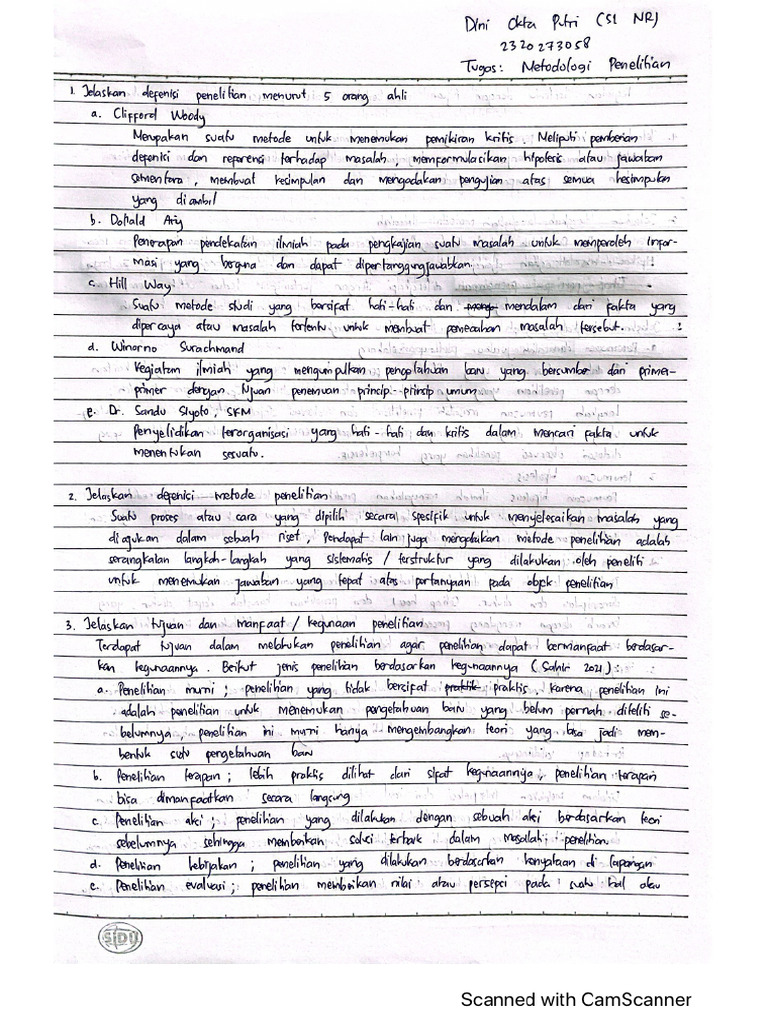 Dini Okta Putri (S1 NR)
2320273058
Tugas: Metodologi Penelitian
1. Jelaskan defenisi penelitian menurut 5 orang ahli
a. Clifford Woody
Merupakan suatu metode untuk menemukan pemikiran kritis. Meliputi pemberian
defenisi dan referensi terhadap masalah, memformulasikan hipotesis atau jawaban
sementara, membuat kesimpulan dan mengadakan pengujian atas semua kesimpulan
yang diambil
b. Donald Ary
Penerapan pendekatan ilmiah pada pengkajian suatu masalah untuk memperoleh infor-
masi yang berguna dan dapat dipertanggungjawabkan.
c. Hill Way
Suatu metode studi yang bersifat hati-hati dan mendalam dari fakta yang
dipercaya atau masalah tertentu untuk membuat pemecahan masalah tersebut.
d. Winarno Surachmand
Kegiatan ilmiah yang mengumpulkan pengetahuan baru yang bersumber dari primer-
primer dengan tujuan penemuan princip-prinsip umum
e. Dr. Sandu Siyoto, SKM
Penyelidikan terorganisasi yang hati-hati dan kritis dalam mencari fakta untuk
menentukan sesuatu.
2. Jelaskan defenici metode penelitian
Suatu proses atau cara yang dipilih secara spesifik untuk menyelesaikan masalah yang
diajukan dalam sebuah riset, Pendapat lain juga mengatakan metode penelitian adalah
serangkaian langkah-langkah yang sistematis / terstruktur yang dilakukan oleh peneliti
untuk menemukan jawaban yang tepat atas pertanyaan pada objek penelitian
3. Jelaskan tujuan dan manfaat / kegunaan penelitian
Terdapat tujuan dalam melakukan penelitian agar penelitian dapat bermanfaat berdasar-
kan kegunaannya. Berikut jenis penelitian berdasarkan kegunaannya (Sahir 2021):
a. Penelitian murni; penelitian yang tidak bersifat praktis karena penelitian ini
adalah penelitian untuk menemukan pengetahuan baru yang belum pernah diteliti se-
belumnya, penelitian ini murni hanya mengembangkan teori yang bisa jadi mem-
bentuk satu pengetahuan baru
b. Penelitian terapan; lebih praktis dilihat dari sifat kegunaannya, penelitian terapan
bisa dimanfaatkan secara langsung
c. Penelitian aksi; penelitian yang dilakukan dengan sebuah aksi berdasarkan teori
sebelumnya sehingga memberikan solusi terbaik dalam masalah penelitian.
d. Penelitian kebijakan; penelitian yang dilakukan berdasarkan kenyataan di lapangan
e. Penelitian evaluasi; penelitian memberikan nilai atau persepsi pada suatu hal atau
SIDU
Scanned with CamScanner